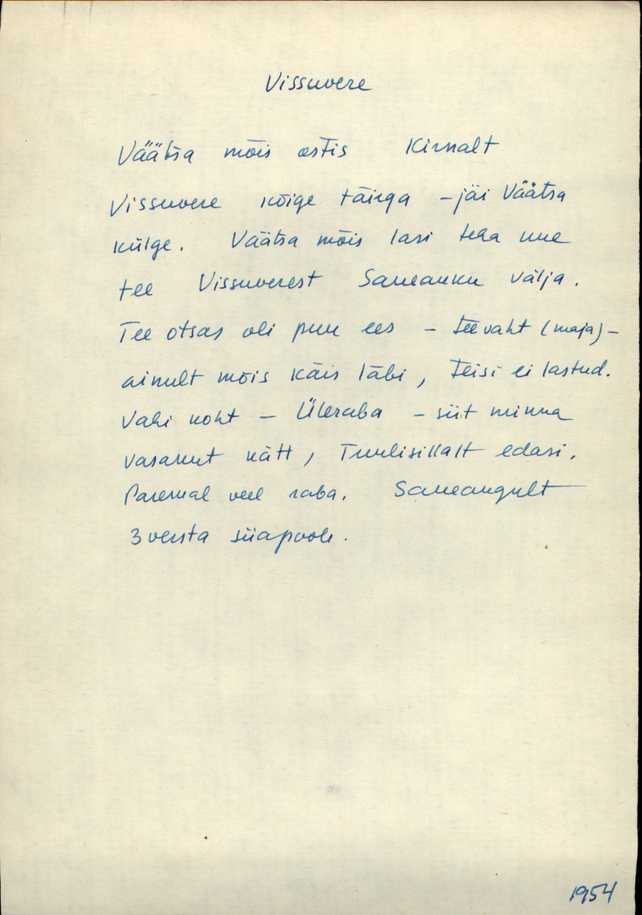 Vissuvere
Väätsa mõis ostis Kirnalt
Vissuvere kõige täiega - jäi Väätsa
külge. Väätsa mõis lasi teha uue
tee Vissuverest Saueauku välja.
Tee otsas oli puu ees - teevaht (maja) -
ainult mõis käis läbi, teisi ei lastud.
Vahi koht - Üleraba - siit minna
vasakut kätt, Tuulisillalt edasi.
Paremal veel raba. Saueaugult
3 versta siiapoole.
1954